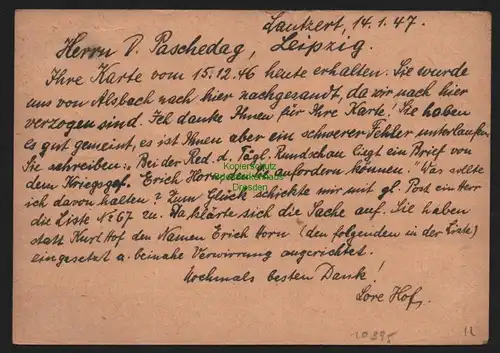 Lautzert, 14.1.47.
Herrn V. Paschedag, Leipzig.
Ihre Karte vom 15.12.46 heute erhalten. Sie wurde
uns von Alsbach nach hier nachgesandt, da wir nach hier
verzogen sind. Ich danke Ihnen für Ihre Karte! Sie haben
es gut gemeint, es ist Ihnen aber ein schwerer Fehler unterlaufen.
Sie schreiben: Bei der Red. d. Tägl. Rundschau liegt ein Brief von
dem Kriegsgef. Erich Horn, den Sie anfordern können. "Was sollte
ich davon halten? Zum Glück schickte mir mit gl. Post ein Herr
die Liste No 67 zu. Da klärte sich die Sache auf. Sie haben
statt Kurt Hof den Namen Erich Horn (den folgenden in der Liste)
eingesetzt u. beinahe Verwirrung angerichtet.
Nochmals besten Dank!
Lore Hof.
Kopierschutz
Dresden